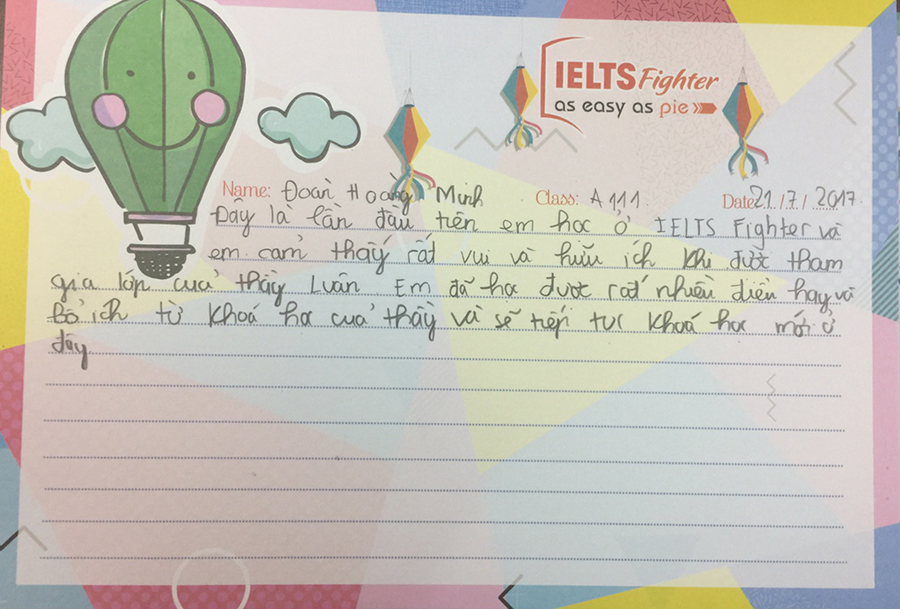 IELTS Fighter
as easy as pie
Name: Đoàn Hoàng Minh Class: A111 Date: 21/7/2017
Đây là lần đầu tiên em học ở IELTS Fighter và
em cảm thấy rất vui và hữu ích khi được tham
gia lớp của thầy Luân. Em đã học được rất nhiều điều hay và
bổ ích từ khoá học của thầy và sẽ tiếp tục khoá học mới ở
đây